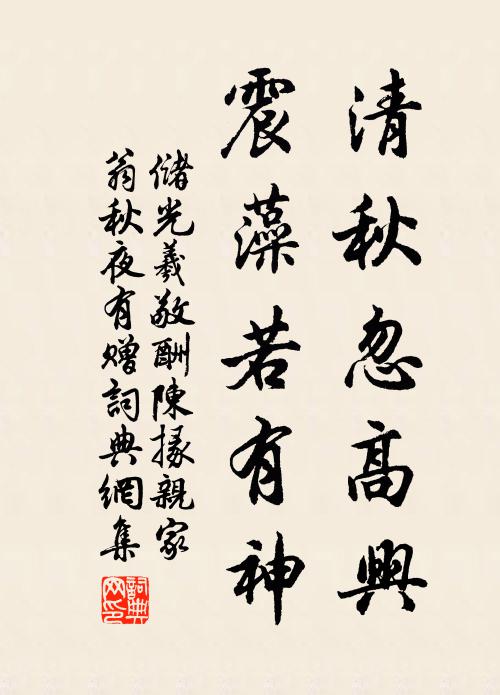 清秋忽高興
震藻若有神
儲光羲敬酬陳掾親家
翁秋夜有贈詞典網集
詞典网印